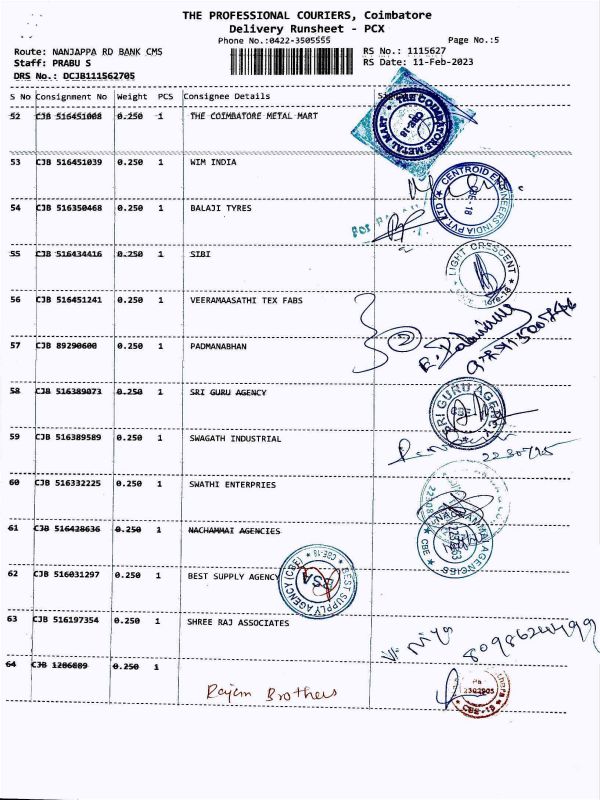 THE PROFESSIONAL COURIERS, Coimbatore
Delivery Runsheet - PCX
Phone No.:0422-3505555 Page No.:5
Route: NANJAPPA RD BANK CMS RS No.: 1115627
Staff: PRABU S RS Date: 11-Feb-2023
DRS No.: DCJB111562705
S No Consignment No Weight PCS Consignee Details
52 CJB 516451008 0.250 1 THE COIMBATORE METAL MART
THE COIMBATORE METAL MART
53 CJB 516451039 0.250 1 WIM INDIA
CENTROID ENGINEERS INDIA PVT. LTD
CBE-18
54 CJB 516350468 0.250 1 BALAJI TYRES
55 CJB 516434416 0.250 1 SIBI
LIGHT CRESCENT
56 CJB 516451241 0.250 1 VEERAMAASATHI TEX FABS
57 CJB 89290600 0.250 1 PADMANABHAN
58 CJB 516389073 0.250 1 SRI GURU AGENCY
SRI GURU AGENCY
59 CJB 516389589 0.250 1 SWAGATH INDUSTRIAL
60 CJB 516332225 0.250 1 SWATHI ENTERPRIES
61 CJB 516428636 0.250 1 NACHAMMAI AGENCIES
NACHAMMAI AGENCIES
CBE
62 CJB 516031297 0.250 1 BEST SUPPLY AGENCY
BEST SUPPLY AGENCY (CBE)
CBE-18
BSA
63 CJB 516197354 0.250 1 SHREE RAJ ASSOCIATES
64 CJB 1286889 0.250 1
Rajam Brothers
Ph
2302905
CBE-18